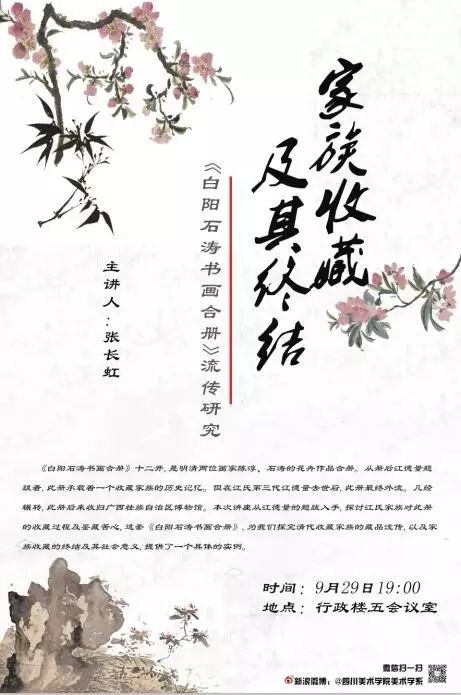 家族收藏
及其终结
《白阳石涛书画合册》流传研究
主讲人：张长虹
《白阳石涛书画合册》十二开，是明清两位画家陈淳、石涛的花卉作品合册。从册后江德量题
跋看，此册承载着一个收藏家族的历史记忆。但在江氏第三代江德量去世后，此册最终外流。几经
辗转，此册后来收归广西壮族自治区博物馆。本次讲座从江德量的题跋入手，探讨江氏家族对此册
的收藏过程及鉴藏苦心，这套《白阳石涛书画合册》，为我们探究清代收藏家族的藏品流传，以及家
族收藏的终结及其社会意义，提供了一个具体的实例。
时间：9月29日19:00
地点：行政楼五会议室
微信扫一扫
新浪微博：@四川美术学院美术学系